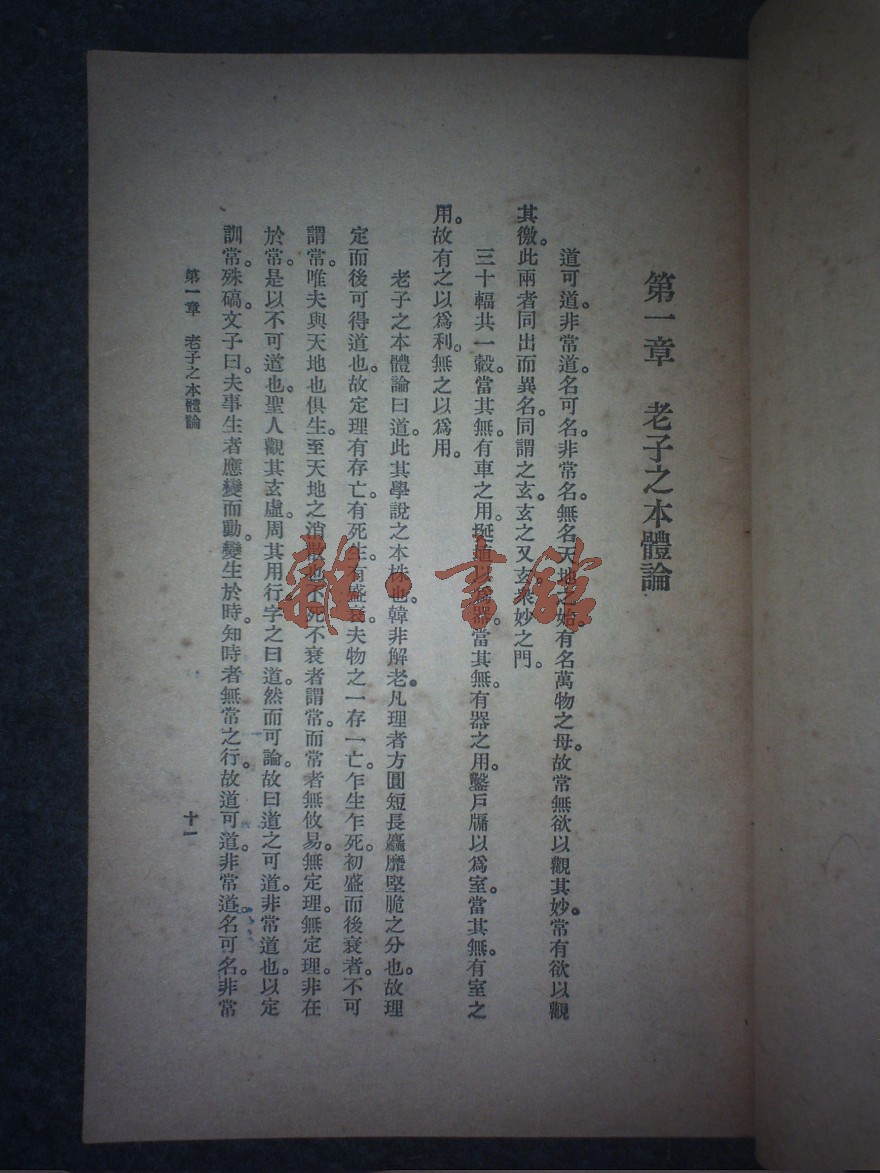 第一章　老子之本體論
道可道。非常道。名可名。非常名。無名天地之始。有名萬物之母。故常無欲以觀其妙。常有欲以觀
其徼。此兩者同出而異名。同謂之玄。玄之又玄。衆妙之門。
三十輻共一轂。當其無。有車之用。埏埴以爲器。當其無。有器之用。鑿戶牖以爲室。當其無。有室之
用。故有之以爲利。無之以爲用。
老子之本體論曰道。此其學說之本株也。韓非解老。凡理者方圓短長麤靡堅脆之分也。故理
定而後可得道也。故定理有存亡。有死生。有盛衰。夫物之一存一亡。乍生乍死。初盛而後衰者。不可
謂常。唯夫與天地也俱生。至天地之消散也不死不衰者謂常。而常者無攸易。無定理。無定理。非在
於常。是以不可道也。聖人觀其玄虛。周其用行。字之曰道。然而可論。故曰道之可道。非常道也。以定
訓常。殊碻。文子曰。夫事生者應變而動。變生於時。知時者無常之行。故道可道。非常道。名可名。非常
第一章　老子之本體論
十一
雜·書館